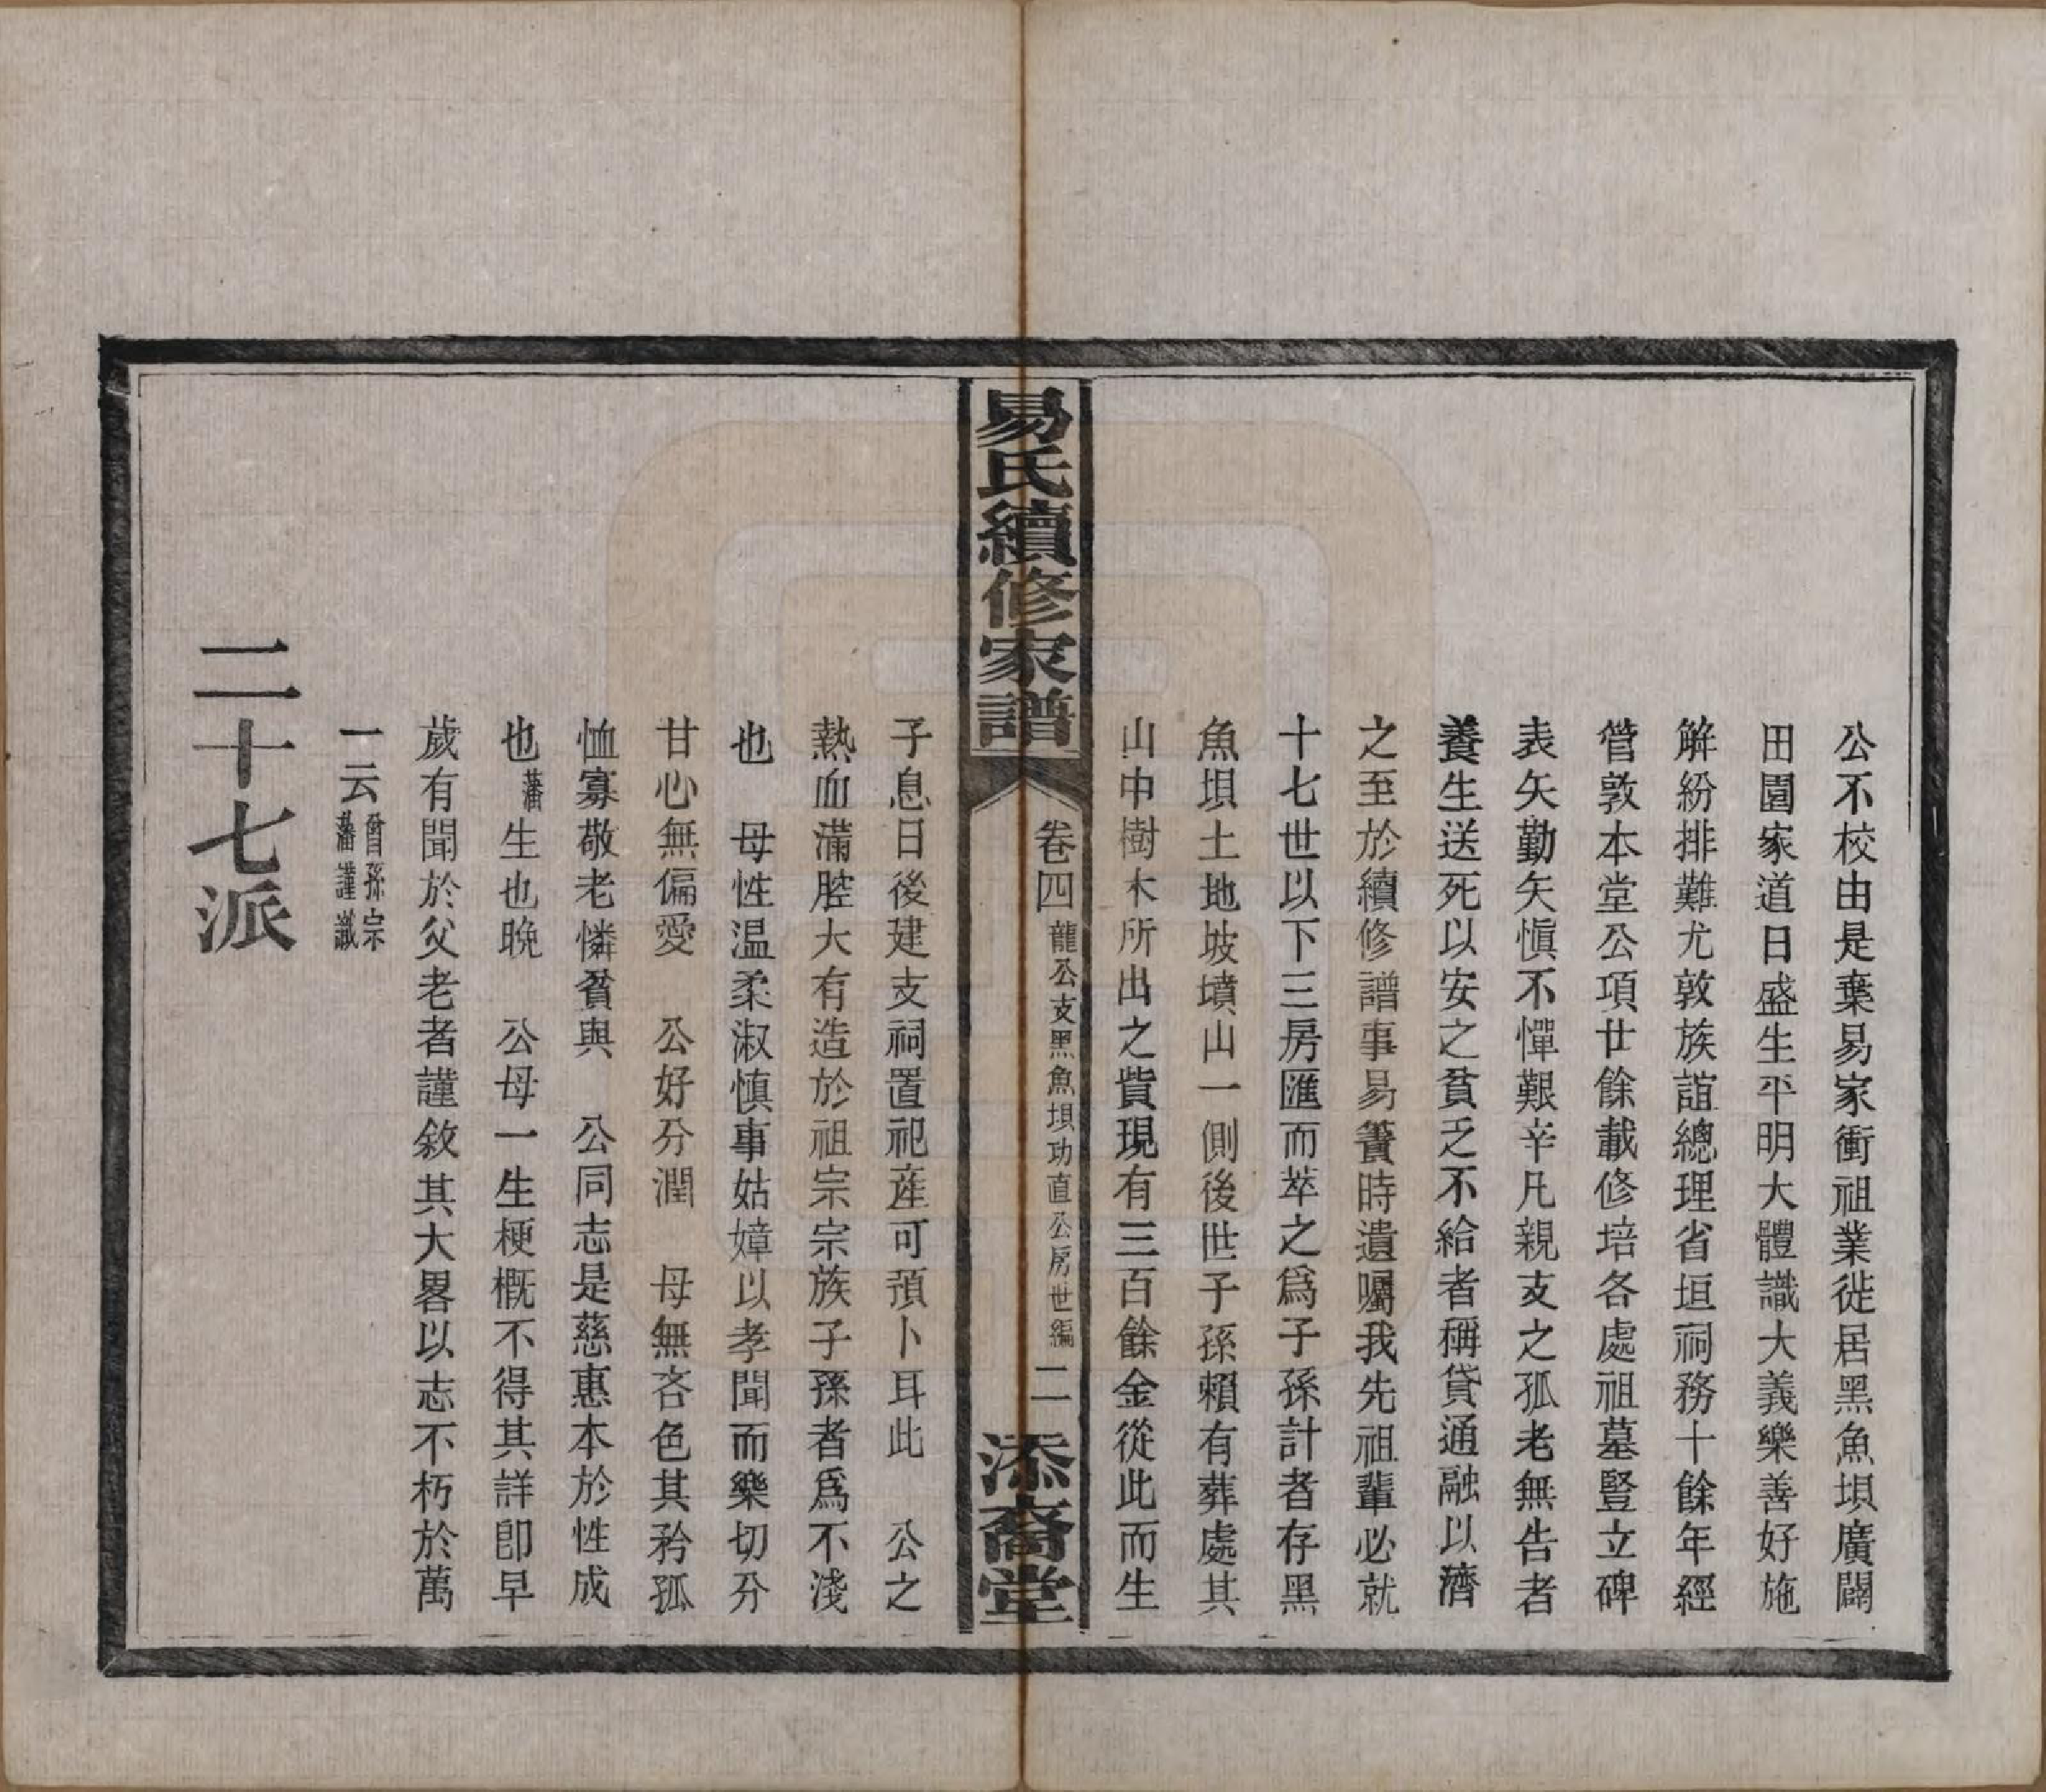 公不校由是棄易家衝祖業徙居黑魚垻廣闢
田園家道日盛生平明大體識大義樂善好施
解紛排難尤敦族誼總理省垣祠務十餘年經
管敦本堂公項廿餘載修培各處祖墓豎立碑
表矢勤矢愼不憚艱辛凡親支之孤老無告者
養生送死以安之貧乏不給者稱貸通融以濟
之至於續修譜事易簀時遺囑我先祖輩必就
十七世以下三房匯而萃之爲子孫計者存黑
魚垻土地坡墳山一側後世子孫賴有葬處其
山中樹木所出之貲現有三百餘金從此而生
易氏續修家譜
卷四
龍公支黑魚垻功直公房世編
二
添裔堂
子息日後建支祠置祀産可預卜耳此 公之
熱血滿腔大有造於祖宗宗族子孫者爲不淺
也 母性温柔淑慎事姑嫜以孝聞而樂切分
甘心無偏愛 公好分潤 母無吝色其矜孤
恤寡敬老憐貧與 公同志是慈惠本於性成
也藩生也晚 公母一生梗概不得其詳卽早
歲有聞於父老者謹敘其大畧以志不朽於萬
一云曾孫宗藩謹識
二十七派